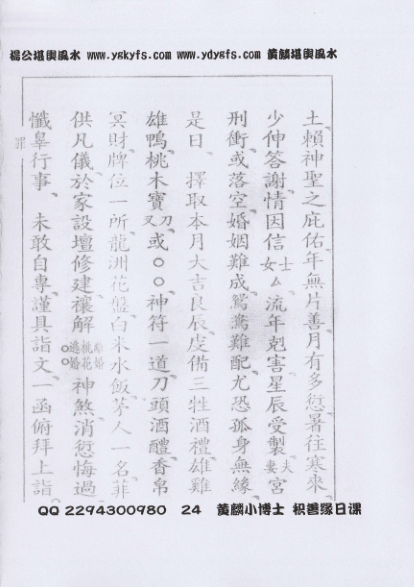 杨公堪舆风水 www.ygkyfs.com www.ydygfs.com 黄麟堪舆风水
土賴神聖之庇佑年無片善月有多愆暑往寒來
少伸答謝情因信士女厶流年剋害星辰受製夫妻宮
刑衝或落空婚姻難成鴛鴦難配尤恐孤身無緣
是日擇取本月大吉良辰虔備三牲酒禮雄雞
雄鴨桃木寶刀叉或○○神符一道刀頭酒醴香帛
冥財牌位一所龍洲花盤白米水飯茅人一名菲
供凡儀於家設壇修建禳解桃花神煞消愆悔過
懺辠行事未敢自專謹具詣文一函俯拜上詣
罪
QQ 2294300980 24 黄麟小博士 积善缘日课